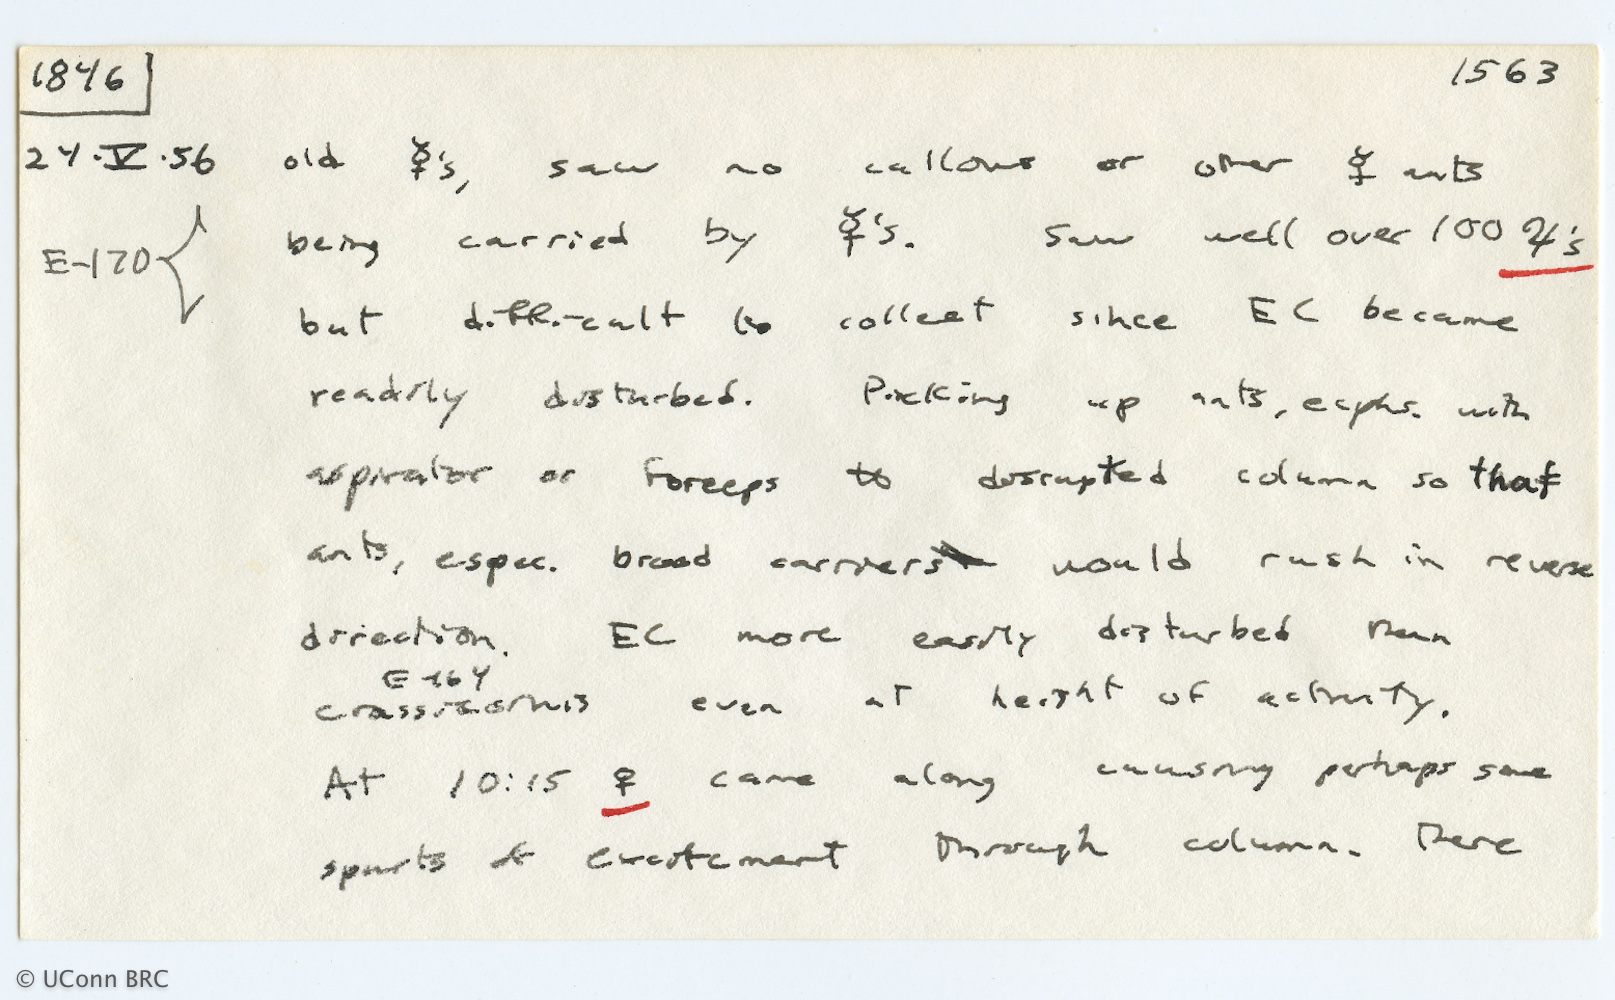 1846 1563
24.V.56 old ☿'s, saw no callows or other ☿ ants
E-170 being carried by ☿'s. Saw well over 100 ♃'s
but difficult to collect since EC became
readily disturbed. Picking up ants, ecphs. with
aspirator or forceps disrupted column so that
ants, espec. brood carriers would rush in reverse
direction. EC more easily disturbed than
E-164
crassicornis even at height of activity.
At 10:15 ♀ came along causing perhaps some
spurts of excitement through column. There
© UConn BRC